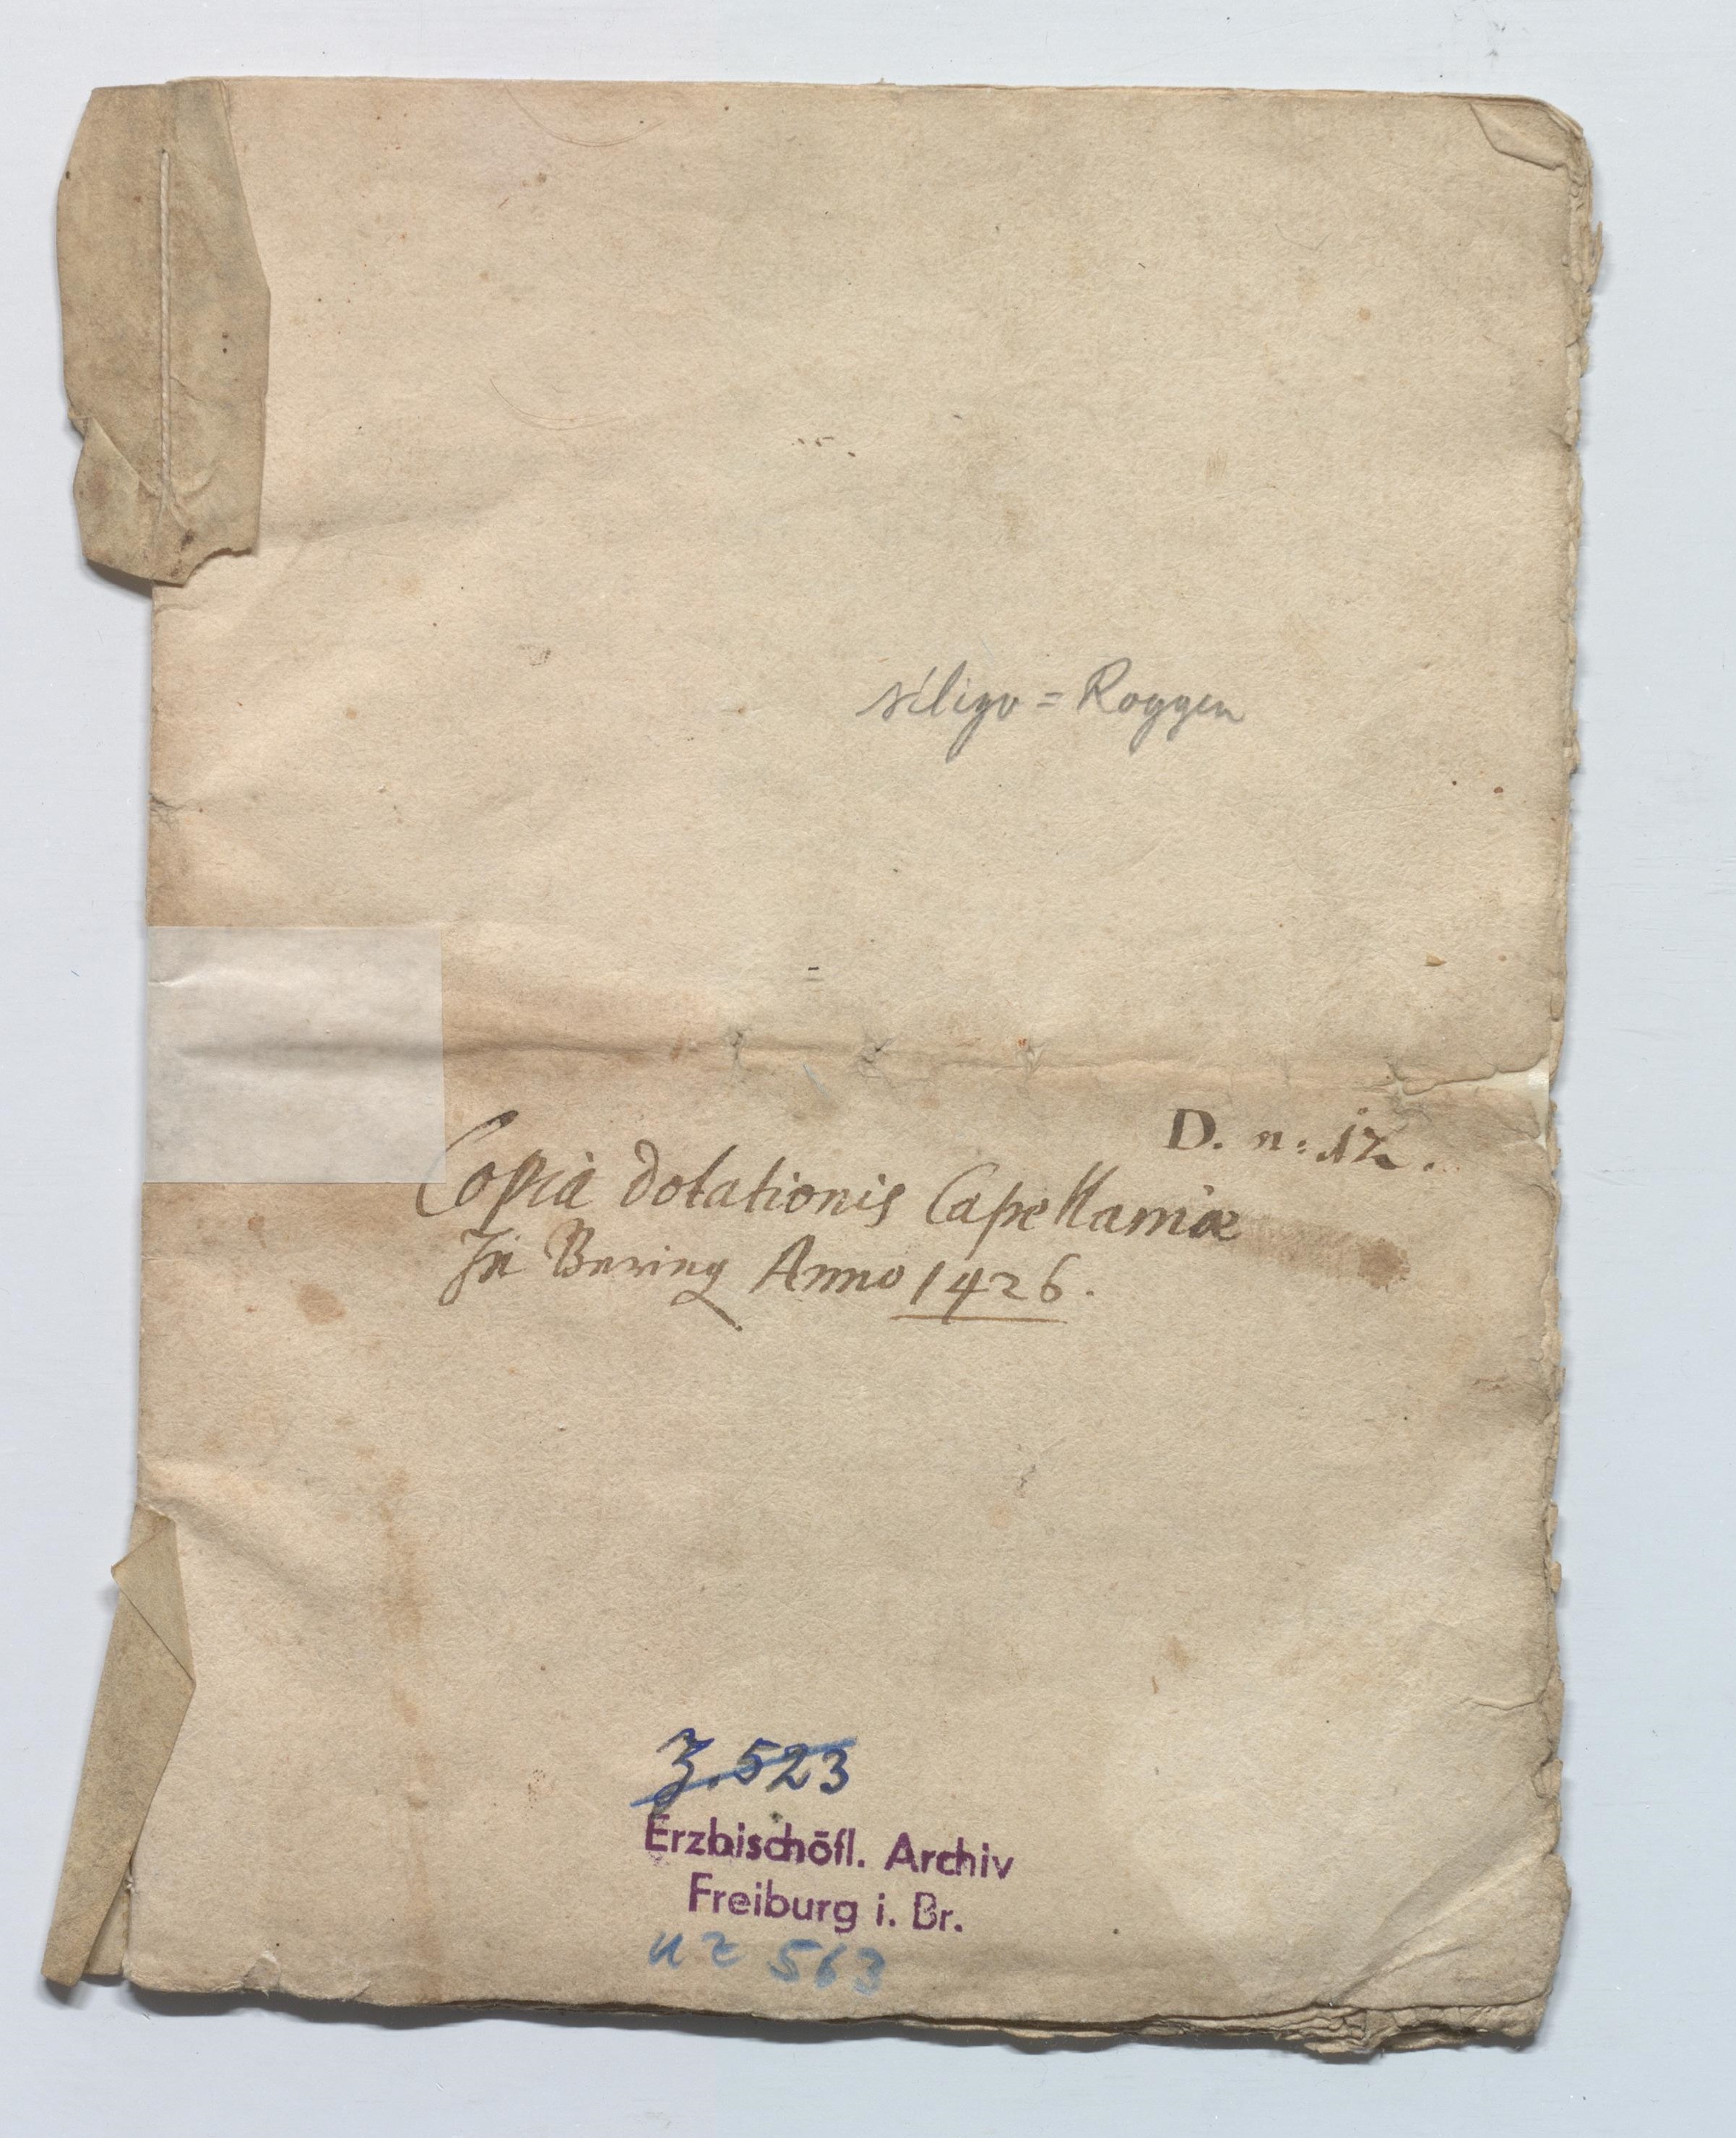 siligo = Roggen
D. n: 12.
Copia dotationis Capellaniæ
In Bering Anno 1426.
Z. 523
Erzbischöfl. Archiv
Freiburg i. Br.
UZ 563